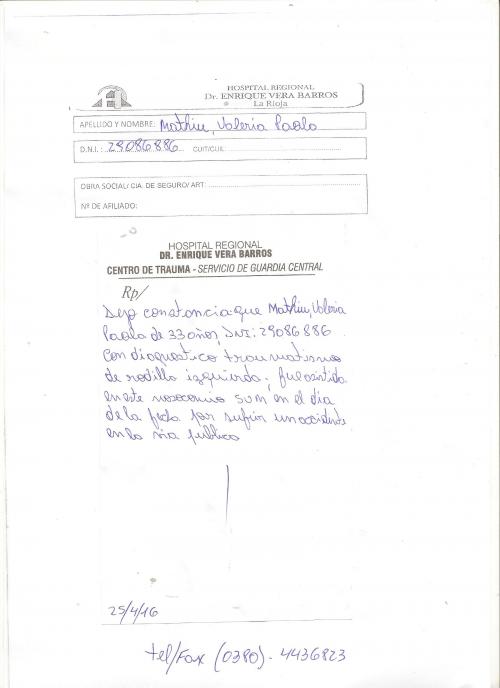 HOSPITAL REGIONAL
Dr. ENRIQUE VERA BARROS
La Rioja
APELLIDO Y NOMBRE: Mathiu, Valeria Paola
D.N.I.: 29086886 CUIT/CUIL:
OBRA SOCIAL/ CIA. DE SEGURO/ ART:
Nº DE AFILIADO:
HOSPITAL REGIONAL
DR. ENRIQUE VERA BARROS
CENTRO DE TRAUMA - SERVICIO DE GUARDIA CENTRAL
Rp/
Dejo constancia que Mathiu, Valeria
Paola de 33 años, DNI: 29086886
Con diagnostico traumatismo
de rodilla izquierda; fue asistida
en este nosocomio en el dia
de la fecha por sufrir un accidente
en la via publica
25/4/16
tel/Fax (0380) - 4436823